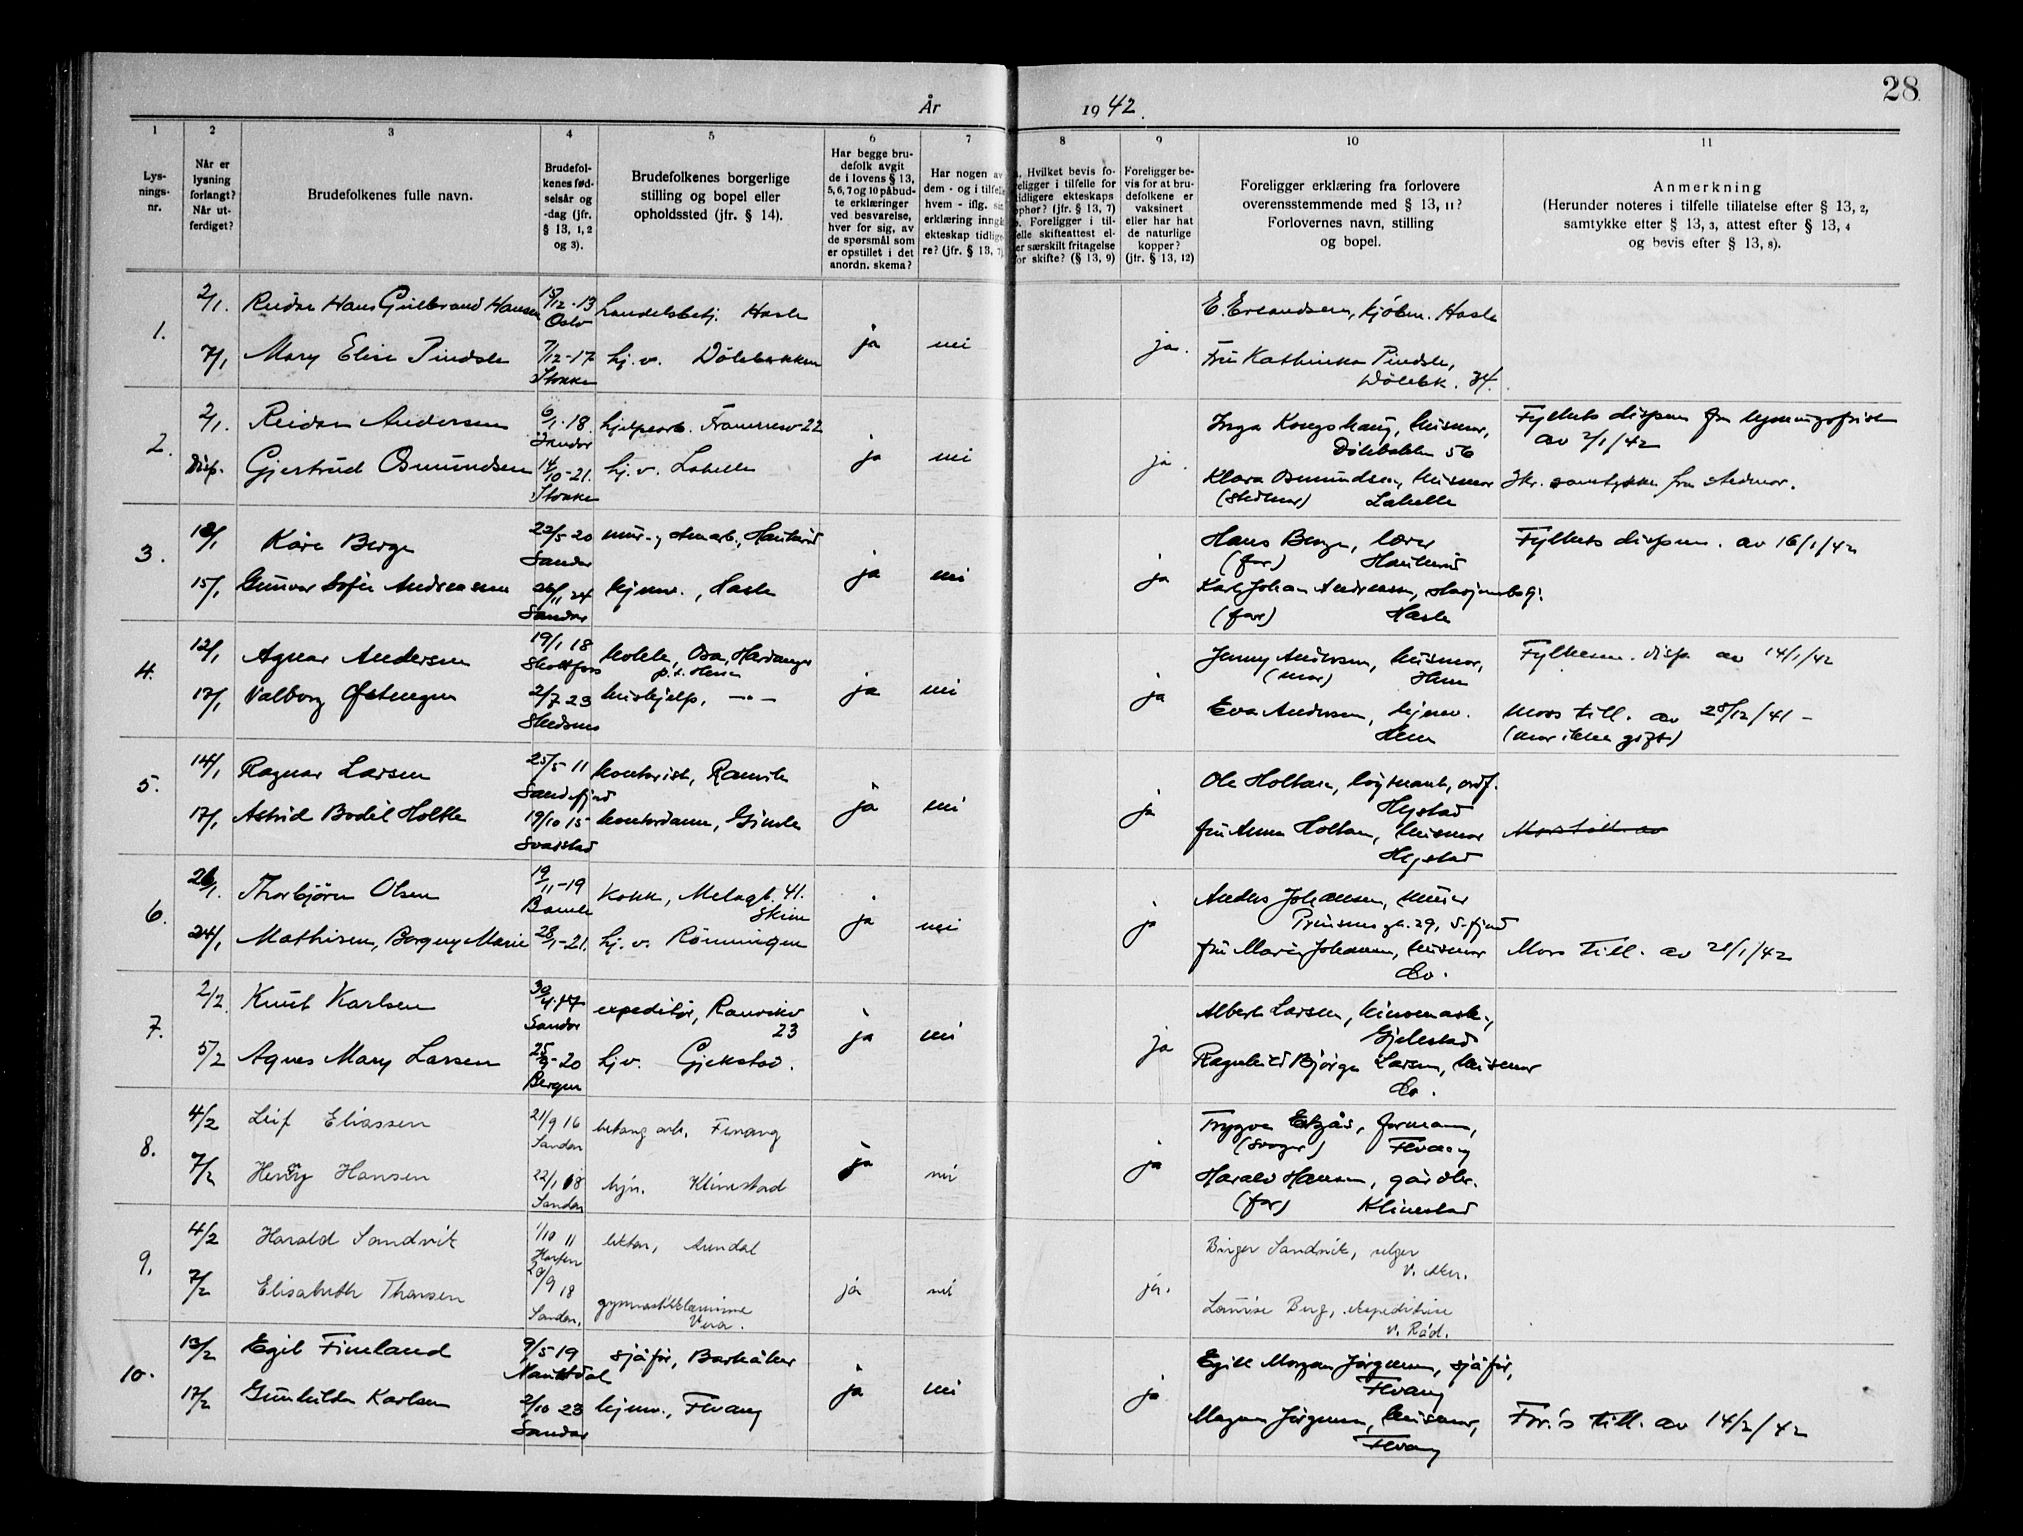 28
År 1942.
1 2 3 4 5 6 7 8 9 10 11
Lys-
nings-
nr.
Når er
lysning
forlangt?
Når ut-
ferdiget?
Brudefolkenes fulle navn.
Brudefol-
kenes fød-
selsår og
-dag (jfr.
§ 13, 1, 2
og 3).
Brudefolkenes borgerlige
stilling og bopel eller
opholdssted (jfr. § 14).
Har begge bru-
defolk avgit
de i lovens § 13,
5, 6, 7 og 10 påbud-
te erklæringer
ved besvarelse,
hver for sig, av
de spørsmål som
er opstillet i det
anordn. skema?
Har nogen av
dem - og i tilfelle
hvem - iflg. sin
erklæring inngå
ekteskap tidlige-
re? (jfr. § 13, 7)
. Hvilket bevis fo-
religger i tilfelle for
tidligere ekteskaps
ophør? (jfr. § 13, 7)
b. Foreligger i til-
felle skifteattest el-
er særskilt fritagelse
for skifte? (§ 13, 9)
Foreligger be-
vis for at bru-
defolkene er
vaksinert
eller har hat
de naturlige
kopper?
(jfr. § 13, 12)
Foreligger erklæring fra forlovere
overensstemmende med § 13, 11?
Forlovernes navn, stilling
og bopel.
Anmerkning
(Herunder noteres i tilfelle tillatelse efter § 13, 2,
samtykke efter § 13, 3, attest efter § 13, 4
og bevis efter § 13, 8).
1. 2/1. Reidar Hans Gulbrand Hansen 15/12-13 Oslo Handelsbetj. Hasle ja nei ja. E. Erlandsen, kjøbm. Hasle
7/1 Mary Elise Pindsle 7/12-17 Stokke hj. v. Dølebakken Fru Kathinka Pindsle,
Dølebk. 34.
2. 2/1. Reidar Andersen 6/1-18. Sandar hjelpearb. Framnesv 22 ja nei ja. Inga Kongshaug, husmor,
Dølebakken 56
Fylkets dispen fra lysningsfristen
av 2/1/42
Disp. Gjertrud Osmundsen 14/10-21. Stokke hj. v. Lahelle Klara Osmundsen, husmor
(stedmor) Lahelle
Skr. samtykke fra stedmor.
3. Kåre Berge 22/5 20 Sandar ja nei ja Hans Berge, lærer
(far) Haukerød
Fylkets dispen. av 16/1/42
15/1 Gunvor Sofie Andreassen 26/11 24 Sandar hjemv., Hasle Karl Johan Andreassen,
(far) Hasle
4. 12/1 Agnar Andersen 19/1 18 Skotfoss kokk, Osa, Hardanger
p.t. Hem
ja nei ja Jenny Andersen, husmor,
(mor) Hem
Fylkesm. disp. av 14/1/42
17/1 Valborg Østengen 2/7 23 Skedsmo hushjelp, -"- Eva Andersen, hjemv.
Hem
Mors till. av 28/12/41 -
(mor ikke gift)
5. 14/1 Ragnar Larsen 25/5 11 Sandefjord kontorist, Ranvik ja nei ja Ole Holtan, løytnant, ordf.
Hystad
17/1 Astrid Bodil Holthe 19/10 15 Svarstad kontordame, Gimle Fru Anna Holtan, husmor
Hystad
Mors till. av
6. 21/1. Thorbjørn Olsen 19/11-19 Bamle Kokk, Melagt. 41.
Skien
ja nei ja Anders Johansen, murer
Prinsensgt. 29, S.fjord
24/1 Mathisen, Borgny Marie 28/1-21. hj. v. Rønningen Fru Marie Johansen, husmor
Do.
Mors till. av 21/1/42
7. 2/2. Knut Karlsen 30/4-17 Sandar expeditør, Ranvikv
23
ja nei ja Albert Larsen,
Gjekstad
5/2 Agnes Mary Larsen 25/9-20 Bergen hj v. Gjekstad. Ragnhild Bjørge Larsen, husmor
Do.
8. 4/2 Leif Eliassen 21/9 16 Sandar betong arb. Fevang ja nei ja Trygve, formann,
(svoger) Fevang
7/2 Henny Hansen 22/1 18 Sandar hjv. Klinestad Harald Hansen, gårdbr.
(far) Klinestad
9. 4/2 Harald Sandvik 1/10 11 lektor, Arendal ja nei ja. Birger Sandvik, selger
V. Aker.
7/2 Elisabeth Thorsen 20/9 18 Sandar. gymnastikklærerinne
Vera.
Louise Berg, ekspeditrise
v. Råd.
10. 13/2 Egil Fineland 9/5 19 Naustdal sjåfør, Barkåker ja nei ja Egill Morgan Jørgensen, sjåfør,
Fevang
17/2 Gunhilda Karlsen 2/10 23 Sandar hjemv., Fevang Magna Jørgensen, husmor,
Fevang
For.'s till. av 14/2/42